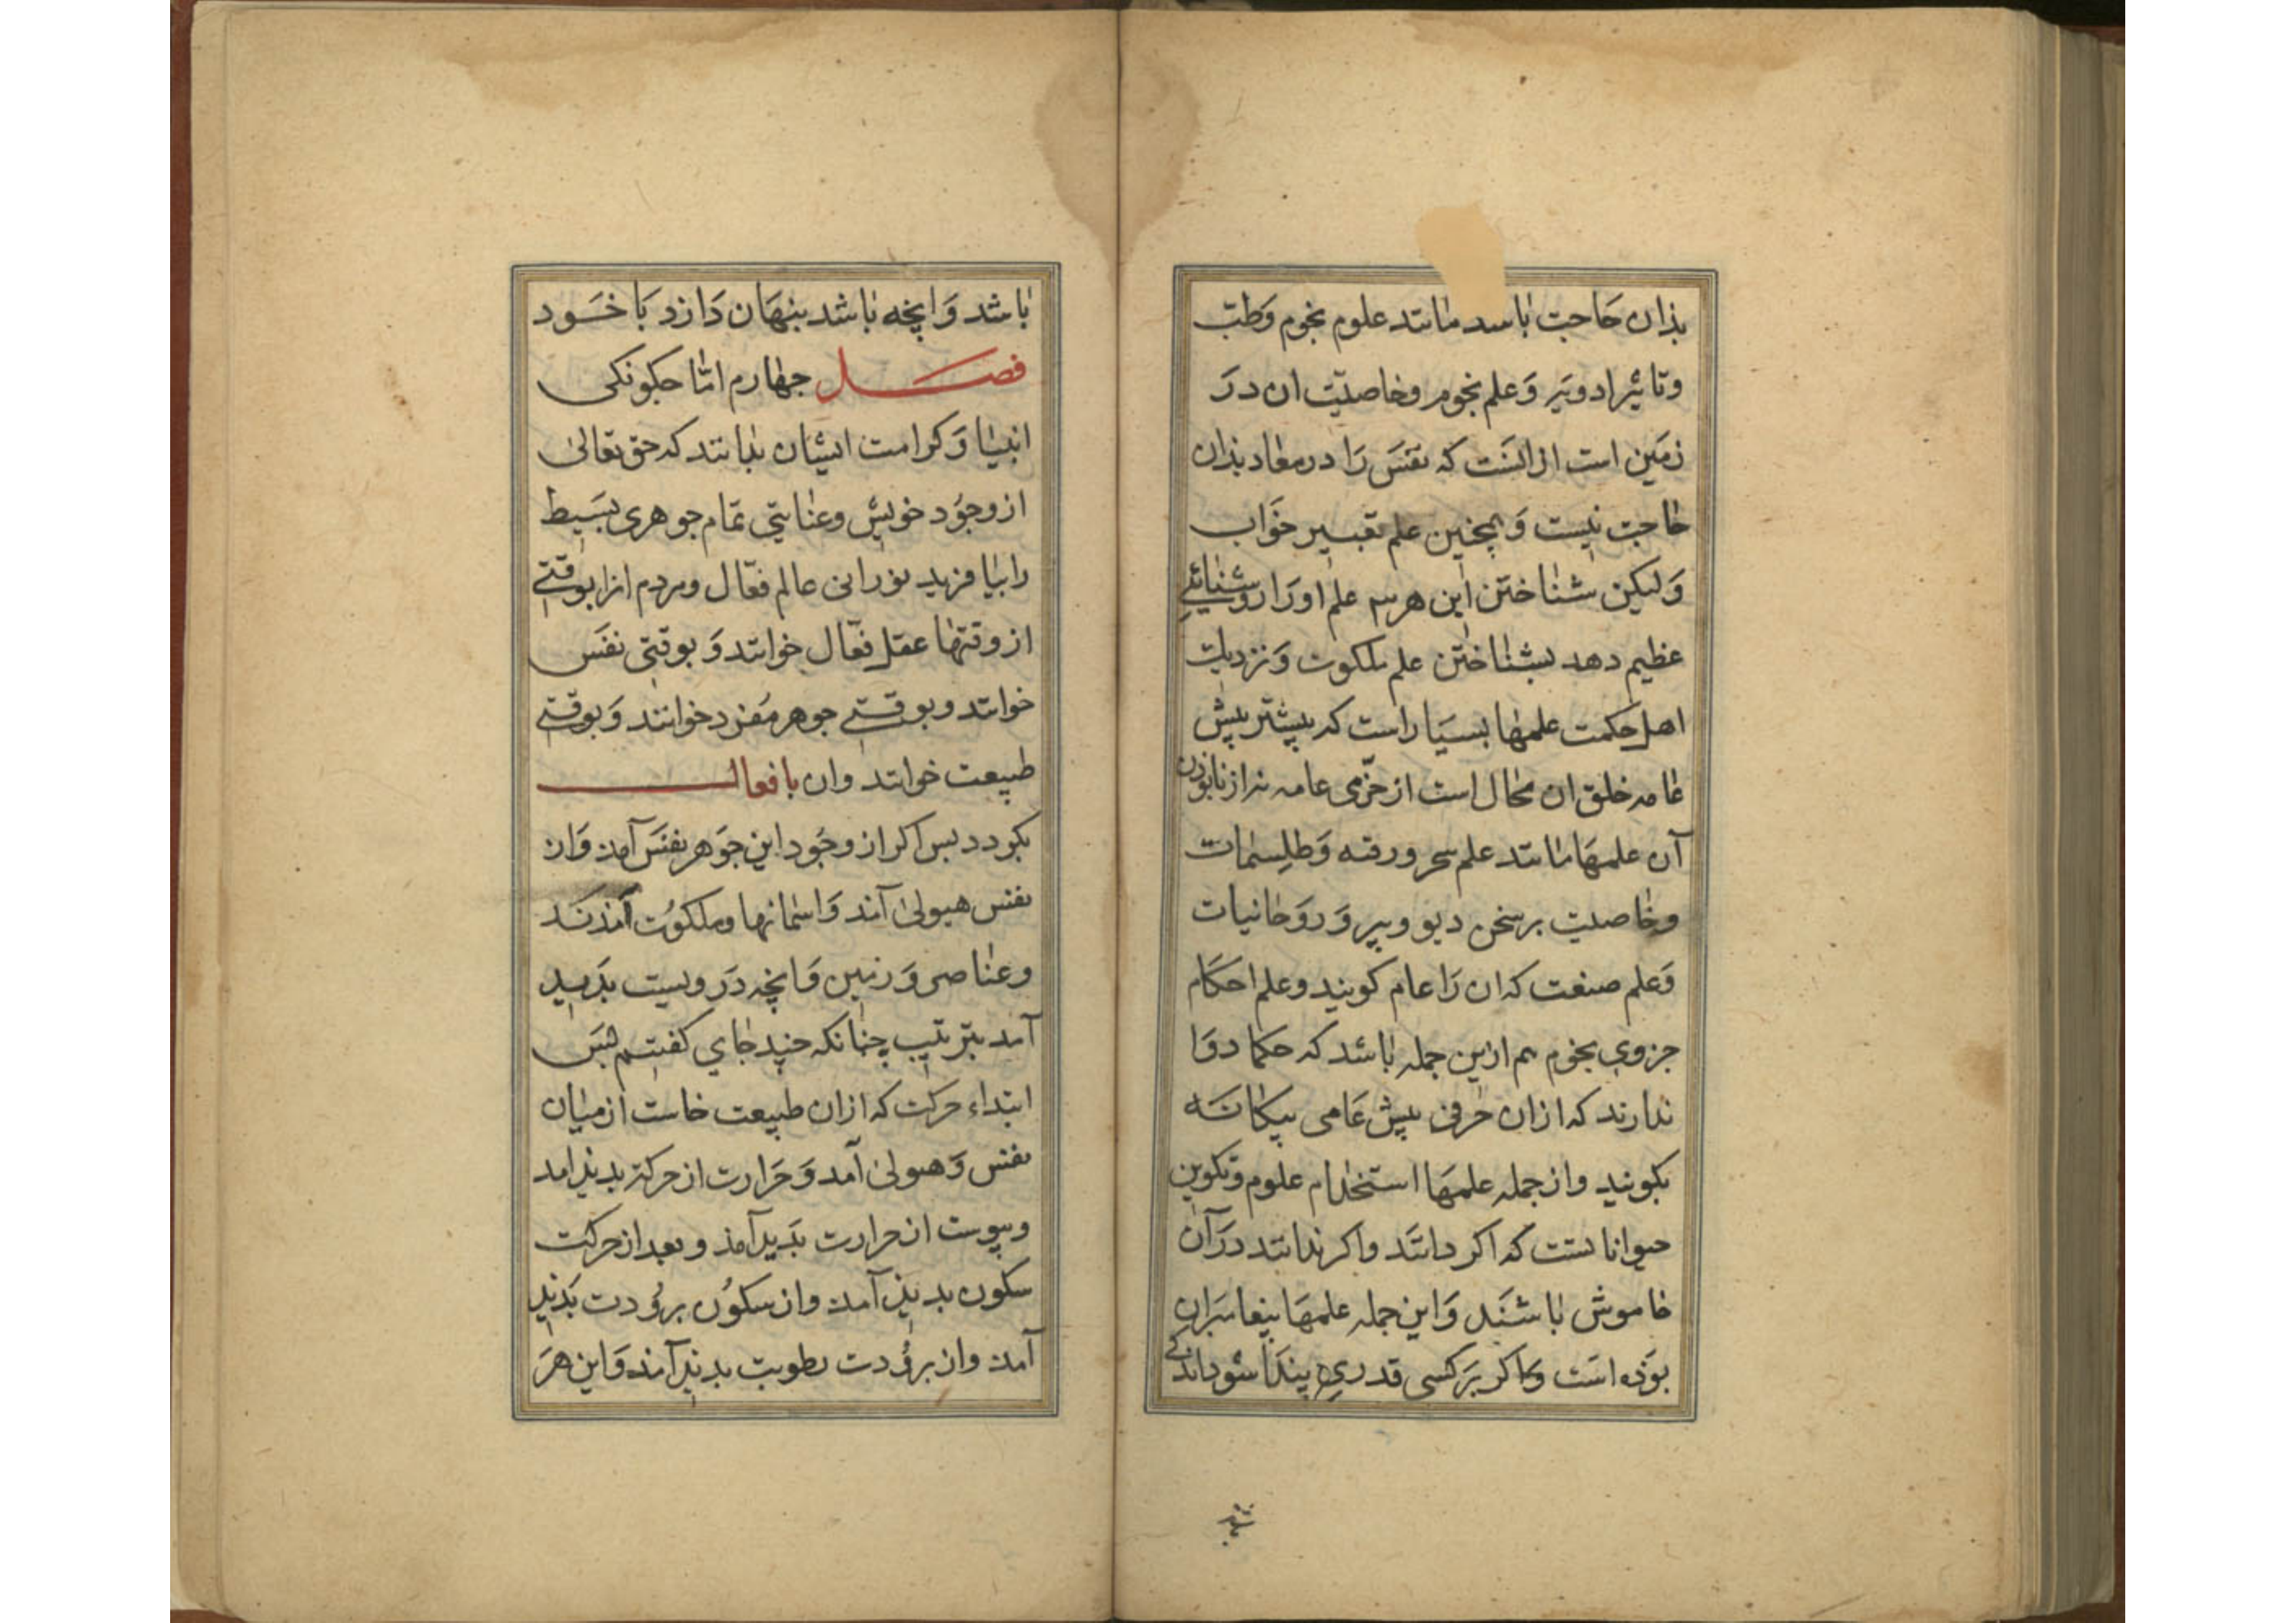 بذان حاجت باشد مانند علوم نجوم وطب
وتاثیر ادویه وعلم نجوم وخاصیت ان در
زمین است از انست که نفس را در معاد بذان
حاجت نیست وهمچنین علم تعبیر خواب
ولیکن شناختن این هرسه علم اورا روشنائی
عظیم دهد بشناختن علم ملکوت ونزدیك
اهل حکمت علمها بسیار است که پیشتر پیش
عامه خلق ان محال است از خرمی عامه نه از نابوذن
آن علمها مانند علم سحر ورقیه وطلسمات
وخاصیت بر سخن دیو وپری وروحانیات
وعلم صنعت که ان را عام کویند وعلم احکام
جزوی نجوم هم ازین جمله باشد که حکما روا
ندارند که از ان حرفی پیش عامی بیکانه
بکویند واز جمله علمها استخدام علوم وتکوین
حیوانا تست که اکر دانند واکر ندانند در آن
خاموش باشند واین جمله علمها پیغامبران
بوذه است واکر بر کسی قدری پیدا شود اندکی
شد
باشد وانچه باشد پنهان دارد با خود
فصل جهارم اما جکونکی
انبیا وکرامت ایشان بدانند که حق تعالی
از وجود خویش وعنایتی تمام جوهری بسیط
را بیافرید نورانی عالم فعال ومردم انرا بوقتی
از وقتها عقل فعال خوانند وبوقتی نفس
خوانند وبوقتی جوهر مفرد خوانند وبوقتی
طبیعت خوانند وان بافعال
بکردد بس اکر از وجود این جوهر نفس آمد وان
نفس هیولی آمد واسمانها وملکوت آمدند
وعناصر وزمین وانچه در ویست بدید
آمد بترتیب چنانکه چند جای کفتیم بس
ابتداء حرکت که از ان طبیعت خاست از میان
نفس وهیولی آمد وحرارت از حرکة بدید امد
ویبوست از حرارت بدید آمذ وبعد از حرکت
سکون بدیذ آمد وان سکون برودت بدید
آمد وان برودت رطوبت بدید آمد واین هر